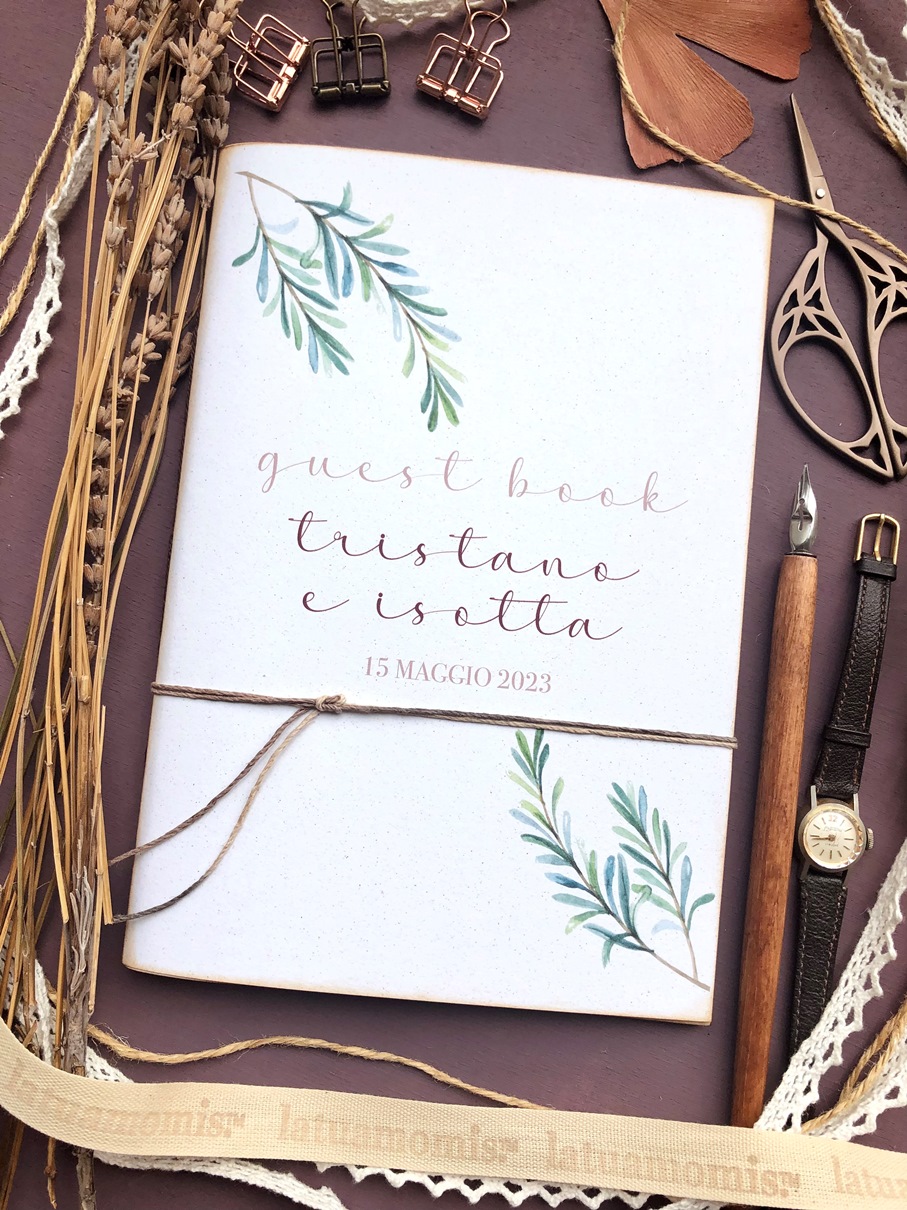 guest book
tristano
e isotta
15 MAGGIO 2023
latuamomisr latuamomisr latuamomisr latua